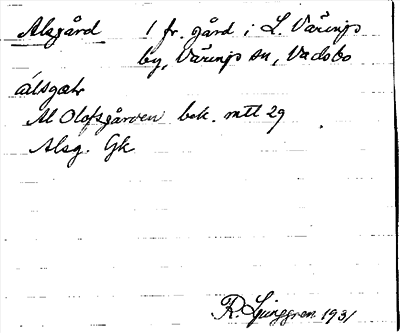 Alsgård 1 fr. gård i L. Värings
by, Värings sn, Vadsbo
álsgaḷr
Al Olofsgården bek. mtl 29
Alsg. Gk
R. Ljunggren 1931